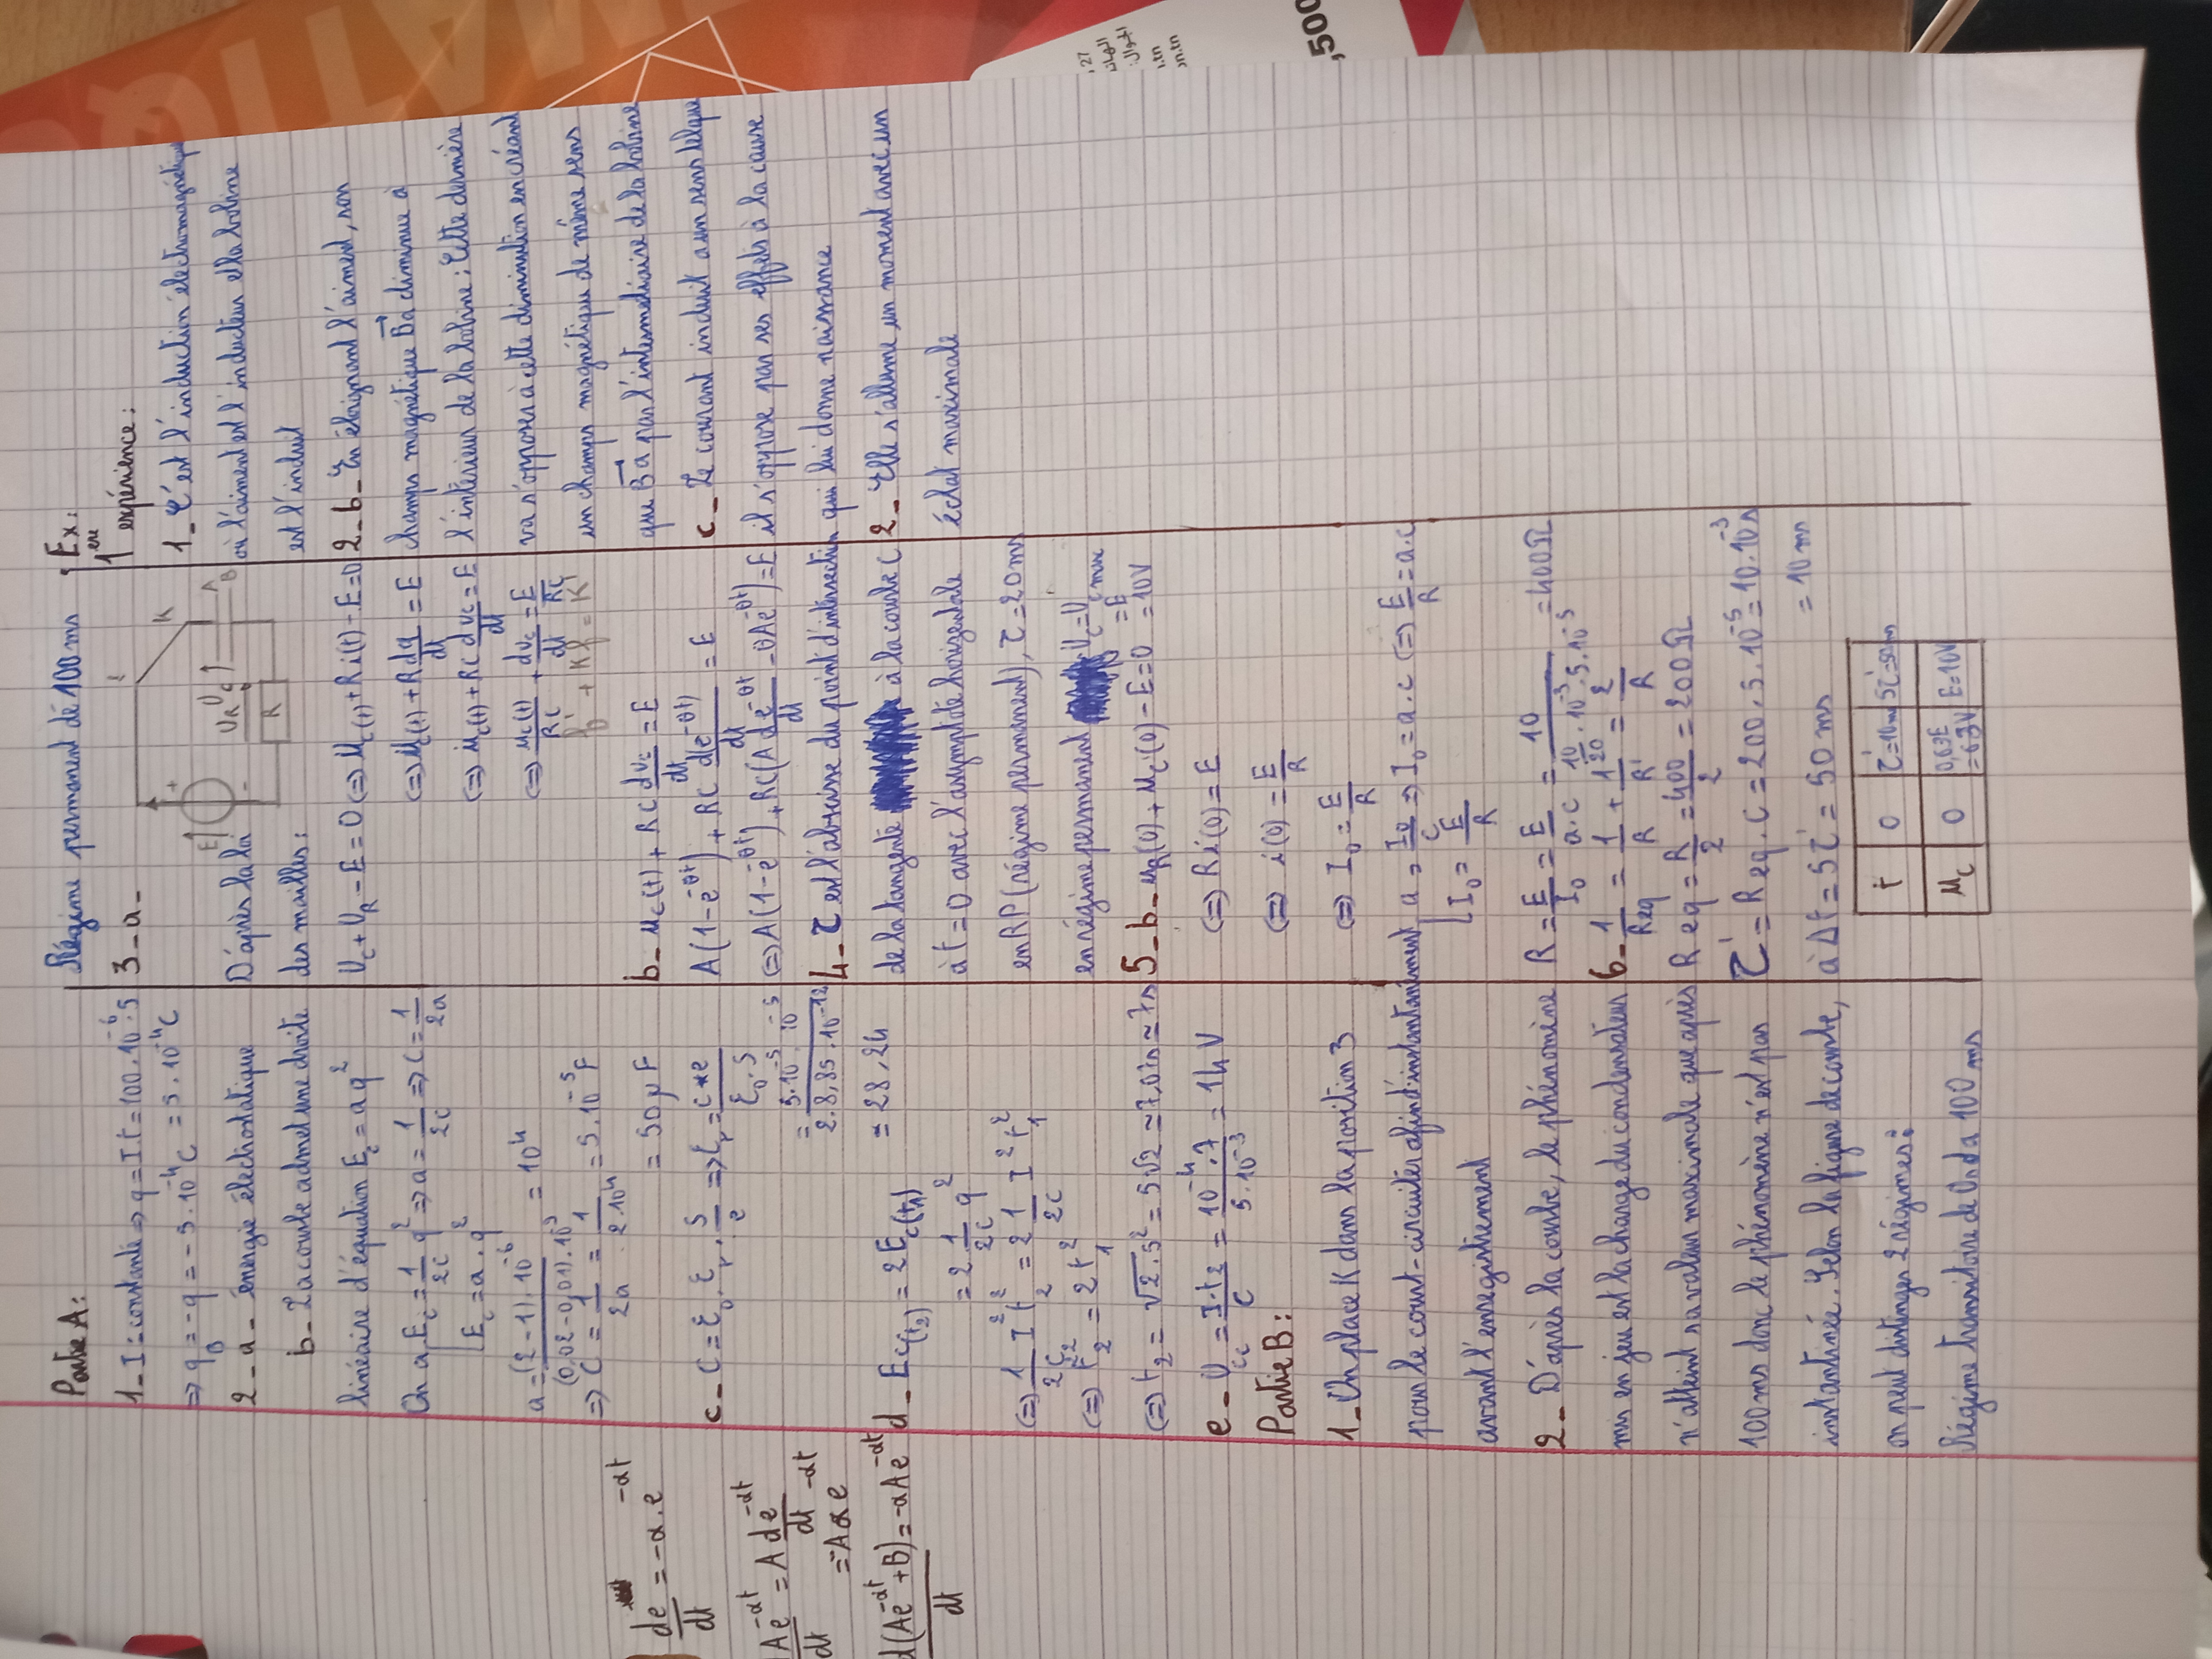 Partie A:
1_ I = constante => q = I.t = 100.10^-6.5
=> q_B = -q = -5.10^-4 C = 5.10^-4 C
2_a_ énergie électrostatique
b_ La courbe admet une droite
linéaire d'équation E_c = aq²
On a E_c = 1/2C q² => a = 1/2C => C = 1/2a
E_c = a.q²
a = (2-1).10^-6 / (0,02-0,01).10^3 = 10^4
=> C = 1/2a = 1/2.10^4 = 5.10^-5 F
= 50 µF
c_ C = ε0.εr.S/e => εr = C*e/ε0.S
= 5.10^-5.10^-5 / 2.8,85.10^-12
= 28,24
d_ Ec(t2) = 2Ec(t1)
= 2.1/2C q²
(=) 1/2C I² t2² = 2 1/2C I² t1²
(=) t2² = 2t1²
(=) t2 = √2.5² = 5√2 ≃ 7,07s ≃ 7s
e_ Uc = I.t2/C = 10^-4.7/5.10^-3 = 14V
Partie B:
1_ On place K dans la position 3
pour le court-circuiter afin d'instantanément
avant l'enregistrement
2_ D'après la courbe, le phénomène
mis en jeu est la charge du condensateur
n'atteint sa valeur maximale que après
100ms donc le phénomène n'est pas
instantiné. Selon la figure de courbe,
on peut distinger 2 régimes:
Régime transitoire de 0s da 100ms
Régime permanent dé 100ms
3_a_
i
K
E
+
-
UR
Uq
A
B
R
D'après la loi
des mailles:
Uc + UR - E = 0 (=) uc(t) + Ri(t) - E = 0
(=) uc(t) + R dq/dt = E
(=) uc(t) + RC duc/dt = E
(=) uc(t)/RC + duc/dt = E/RC
b_ uc(t) + RC duc/dt = E
A(1-e^-θt) + RC d(e^-θt)/dt = E
(=) A(1-e^-θt) + RC(A de^-θt/dt - θAe^-θt) = E
4_ τ est l'abscisse du point d'intersection
de la tangente à la courbe C
à t = 0 avec l'asymptote horizentale
en RP (régime permanent), τ = 20ms
en régime permanent Uc = Ucmax
= E
= 10V
5_b_ uR(0) + uc(0) - E = 0
(=) Ri(0) = E
(=) i(0) = E/R
(=) I0 = E/R
a = I0/C => I0 = a.c (=) E/R = a.c
I0 = E/R
R = E/I0 = E/a.c = 10 / 10/20.10^-3.5.10^-5 = 400Ω
6_ 1/Req = 1/R + 1/R' = 2/R
Req = R/2 = 400/2 = 200Ω
τ' = Req.C = 200.5.10^-5 = 10.10^-3 s
= 10ms
à Δt = 5τ' = 50ms
t 0 τ'=10ms 5τ'=50ms
uc 0 0,63E = 6,3V E=10V
Ex:
1ère expérience:
1_ C'est l'induction électromagnétique
où l'aiment est l'inducteur et la bobine
est l'induit
2_b_ En éloignant l'aiment, son
champs magnétique Ba diminue à
l'intérieur de la bobine; Cette dernière
va s'opposer à cette diminution en créant
un champs magnétique de même sens
que Ba par l'intermédiaire de la bobine
c_ Le courant induit a un sens telque
il s'oppose par ses effets à la cause
qui lui donne naissance
2_ Elle s'allume un moment avec un
éclat maximale
de^-αt/dt = -α.e^-αt
Ae^-αt/dt = A de^-αt/dt
= -Aαe^-αt
d(Ae^-αt + B)/dt = -αAe^-αt
,500
27
الجوال:
n.tn